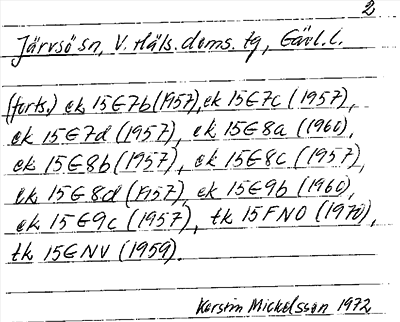 2
Järvsö sn, V. Häls. doms. tg, Gävl. l.
(forts.) ek 15G7b (1957), ek 15G7c (1957),
ek 15G7d (1957), ek 15G8a (1960),
ek 15G8b (1957), ek 15G8c (1957),
ek 15G8d (1957), ek 15G9b (1960),
ek 15G9c (1957), tk 15FNO (1970),
tk 15GNV (1959).
Kerstin Mickelsson 1972